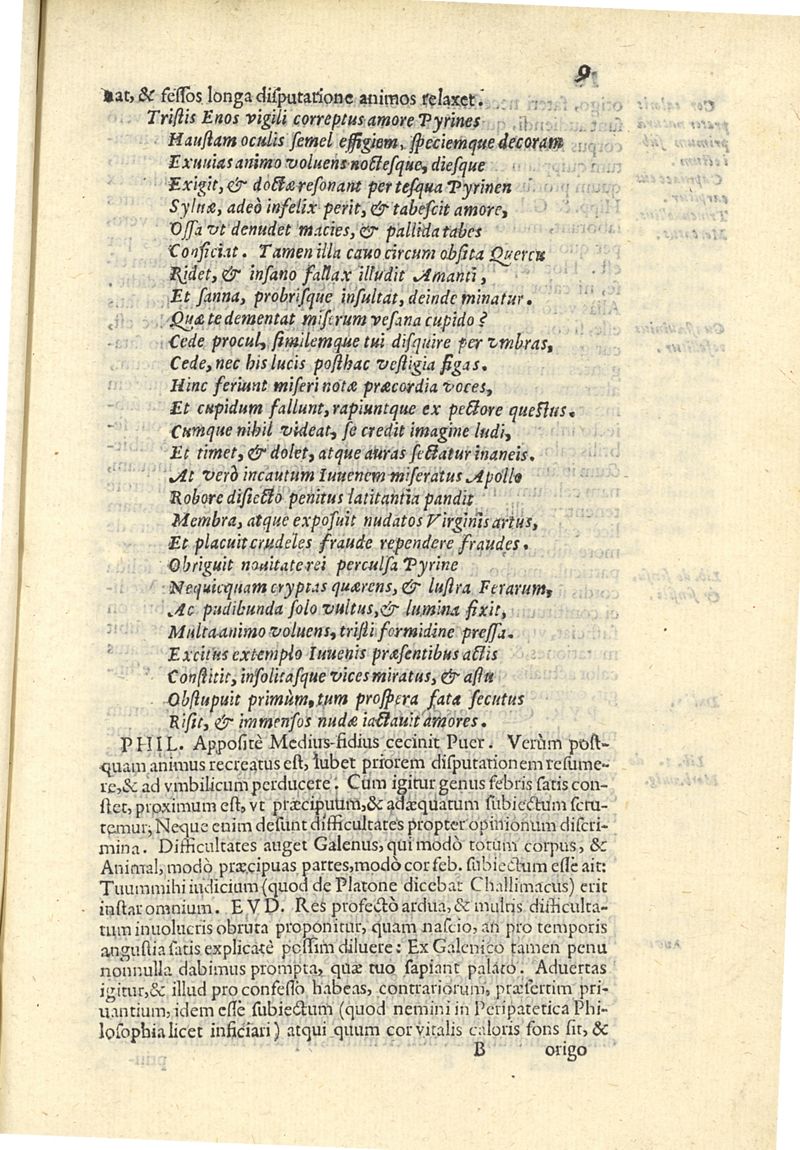 9
nat, & feſſos longa diſputatione animos relaxet.
Triſtis Enos vigili correptus amore Pyrines
Hauſtam oculis ſemel effigiem, ſpeciemque decoram
Exuuias animo voluens noctesque, diesque
Exigit, & doctæ reſonant per teſqua Pyrinen
Syluæ, adeò infelix perit, & tabeſcit amore,
Oſſa vt denudet macies, & pallida tabes
Conficiat. Tamen illa cauo circum obſita Quercu
Ridet, & inſano fallax illudit Amanti,
Et ſanna, probriſque inſultat, deinde minatur.
Quæ te dementat miſerum veſana cupido?
Cede procul, ſimilemque tui diſquire per vmbras,
Cede, nec his lucis poſthac veſtigia figas.
Hinc feriunt miſeri notæ præcordia voces,
Et cupidum fallunt, rapiuntque ex pectore queſtus.
Cumque nihil videat, ſe credit imagine ludi,
Et timet, & dolet, atque auras ſectatur inaneis.
At verò incautum Iuuenem miſeratus Apollo
Robore diſiecto penitus latitantia pandit
Membra, atque expoſuit nudatos Virginis artus,
Et placuit crudeles fraude rependere fraudes.
Obriguit nouitate rei perculſa Pyrine
Nequicquam cryptas quærens, & luſtra Ferarum,
Ac pudibunda ſolo vultus, & lumina fixit,
Multa animo voluens, triſti formidine preſſa.
Excitus extemplo Iuuenis præſentibus actis
Conſtitit, inſolitaſque vices miratus, & aſtu
Obſtupuit primùm, tum proſpera fata ſecutus
Riſit, & immenſos nudæ iactauit amores.
PHIL. Appoſitè Medius-fidius cecinit Puer. Verùm poſt-
quam animus recreatus eſt, iubet priorem diſputationem reſume-
re, & ad vmbilicum perducere. Cùm igitur genus febris ſatis con-
ſtet, proximum eſt, vt præcipuum, & adæquatum ſubiectum ſcru-
temur, Neque enim deſunt difficultates propter opinionum diſcri-
mina. Difficultates auget Galenus, qui modò totum corpus, &
Animal, modò præcipuas partes, modò cor feb. ſubiectum eſſe ait:
Tuum mihi iudicium (quod de Platone dicebat Challimacus) erit
inſtar omnium. EVD. Res profectò ardua, & multis difficulta-
tum inuolucris obruta proponitur, quam naſcio, an pro temporis
anguſtia ſatis explicatè poſſim diluere: Ex Galenico tamen penu
nonnulla dabimus prompta, quæ tuo ſapiant palato. Aduertas
igitur, & illud pro confeſſo habeas, contrariorum, præſertim pri-
uantium, idem eſſe ſubiectum (quod nemini in Peripatetica Phi-
loſophia licet inficiari) atqui quum cor vitalis caloris fons ſit, &
B origo